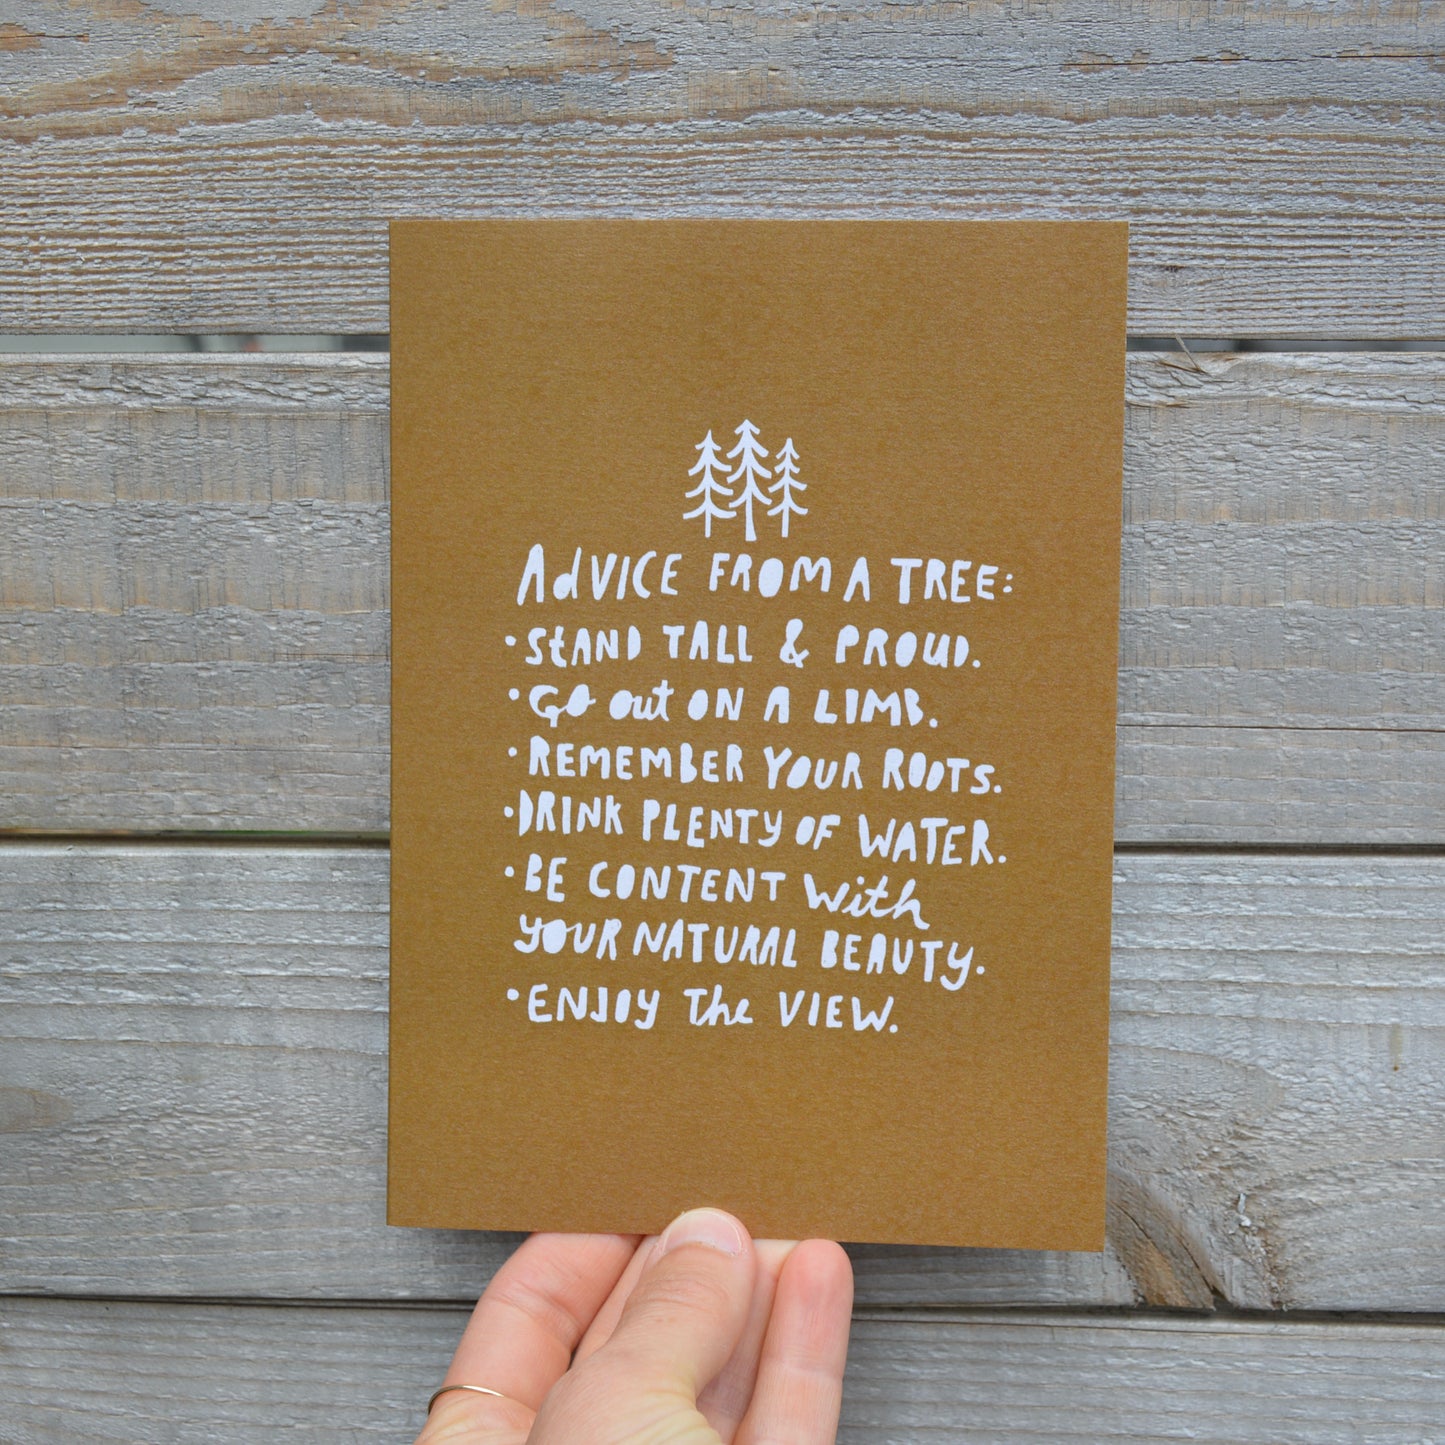 AdVICE FROM A TREE:
• StAND TALL & PROUD.
• Go out ON A LIMB.
• REMEMBER YOUR ROOTS.
• DRINK PLENTY OF WATER.
• BE CONTENT with
YOUR NATURAL BEAUTY.
• ENJOY The VIEW.